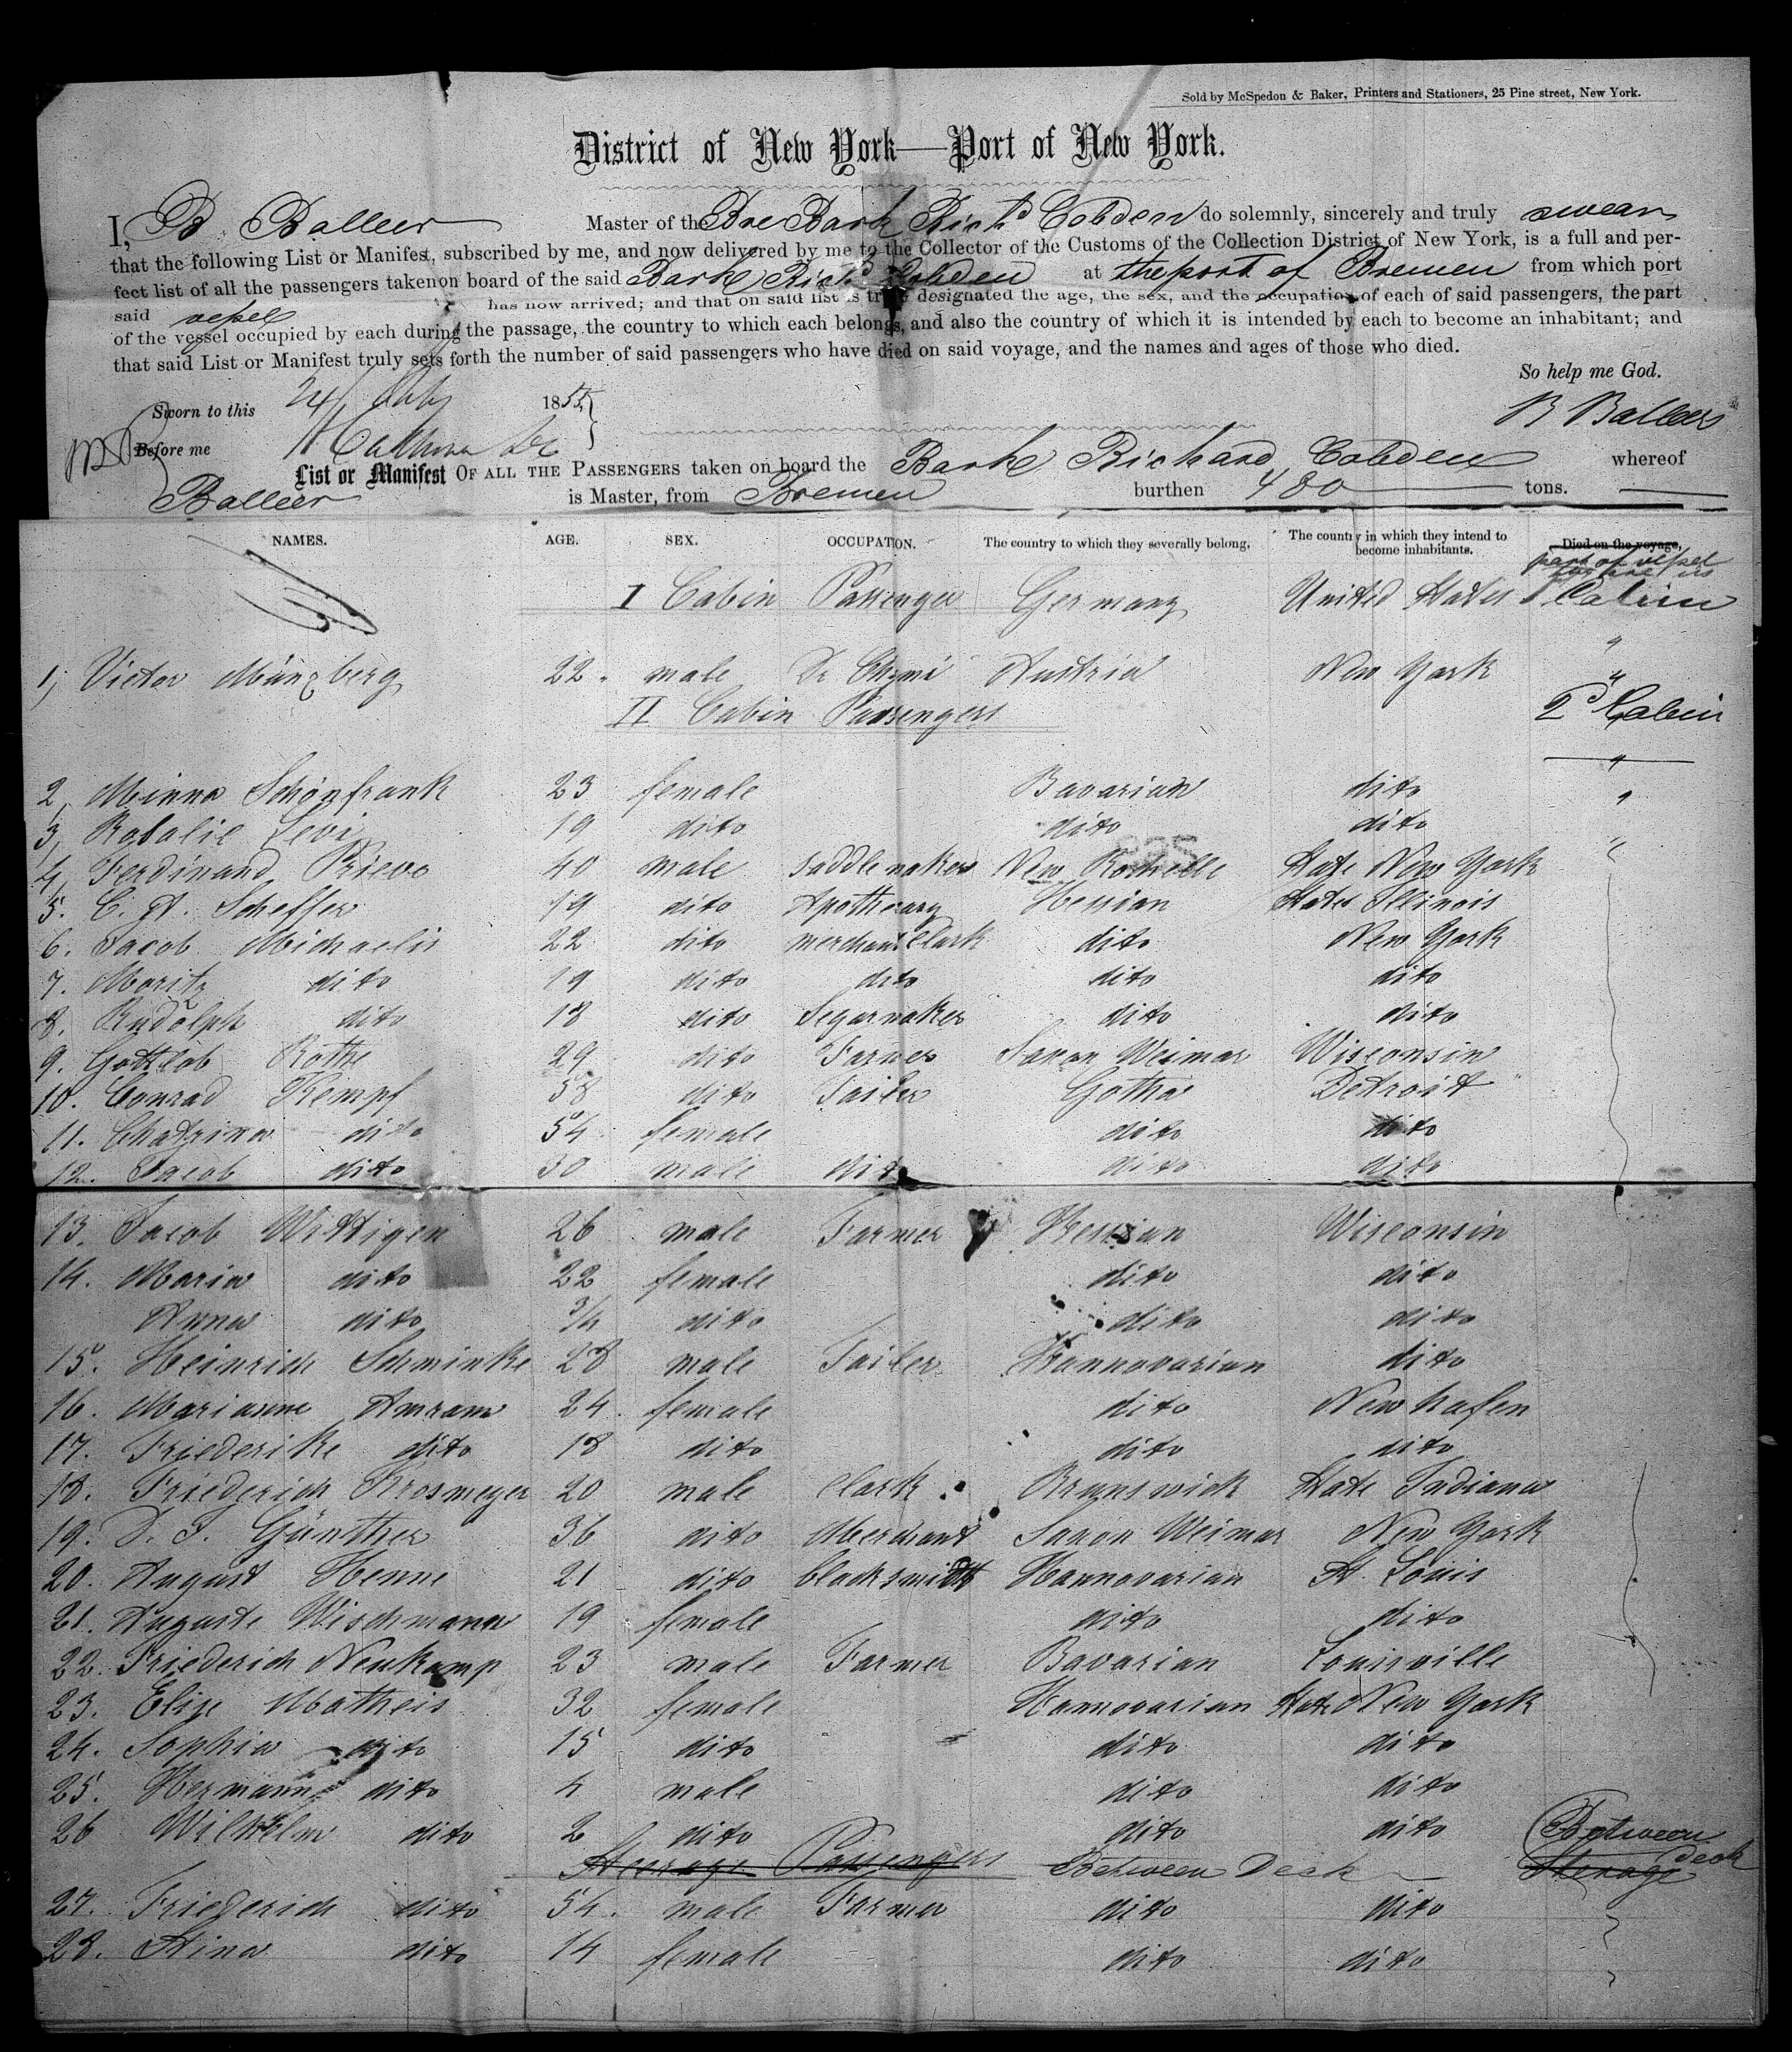 Sold by McSpedon & Baker, Printers and Stationers, 25 Pine street, New York.
District of New York—Port of New York.
I, B. Balleer Master of the Bre Bark Richd Cobden do solemnly, sincerely and truly swear
that the following List or Manifest, subscribed by me, and now delivered by me to the Collector of the Customs of the Collection District of New York, is a full and per-
fect list of all the passengers taken on board of the said Bark Richd Cobden at the port of Bremen from which port
said vessel has now arrived; and that on said list is truly designated the age, the sex, and the occupation of each of said passengers, the part
of the vessel occupied by each during the passage, the country to which each belongs, and also the country of which it is intended by each to become an inhabitant; and
that said List or Manifest truly sets forth the number of said passengers who have died on said voyage, and the names and ages of those who died.
So help me God.
Sworn to this 24 1855 B Balleer
Before me
List or Manifest OF ALL THE PASSENGERS taken on board the Bark Richard Cobden whereof
Balleer is Master, from Bremen burthen 480 tons.
NAMES. AGE. SEX. OCCUPATION. The country to which they severally belong. The country in which they intend to become inhabitants. Died on the voyage,
part of vessel
I Cabin Passenger Germany United States Cabin
1, Victor Münzberg 22. male Dr Chymi Austria New York "
II Cabin Passengers 2d Cabin
2, Minna Schönfrank 23 female Bavarian dito "
3, Rosalie Levi 19 dito dito dito
4, Ferdinand Prievo 40 male saddlemaker New Rochelle State New York
5. C. A. Scheffer 19 dito Apothecary Hessian States Illinois
6. Jacob Michaelis 22 dito merchant Clark dito New York
7. Moritz dito 19 dito dito dito dito
8. Rudolph dito 18 dito Segarmaker dito dito
9. Gottlob Rothe 29 dito Farmer Saxon Weimar Wisconsin
10. Conrad Kempf 58 dito Tailer Gotha Detroit
11. Chatrina dito 54 female dito dito
12. Jacob dito 30 male dito dito dito
13. Jacob Wittigen 26 male Farmer Hessian Wisconsin
14. Maria dito 22 female dito dito
Anna dito 3/4 dito dito dito
15. Heinrich Schminke 28 male Tailer Hannovarian dito
16. Marianne Amram 24. female dito New hafen
17. Friederike dito 18 dito dito dito
18. Friederich Krosmeyer 20 male Clark Brunswick State Indiana
19. D. F. Günther 36 dito Merchant Saxon Weimar New York
20. August Henne 21 dito blacksmidt Hannovarian St. Louis
21. Auguste Wischmann 19 female dito dito
22. Friederich Neukamp 23 male Farmer Bavarian Louisville
23. Elise Matheis 32 female Hannovarian State New York
24. Sophia dito 15 dito dito dito
25. Hermann dito 4 male dito dito
26 Wilhelm dito 2 dito dito dito
Steerage Passengers Between Deck Between Deck Sterage
27. Friederich dito 54. male Farmer dito dito
28. Mina dito 14 female dito dito